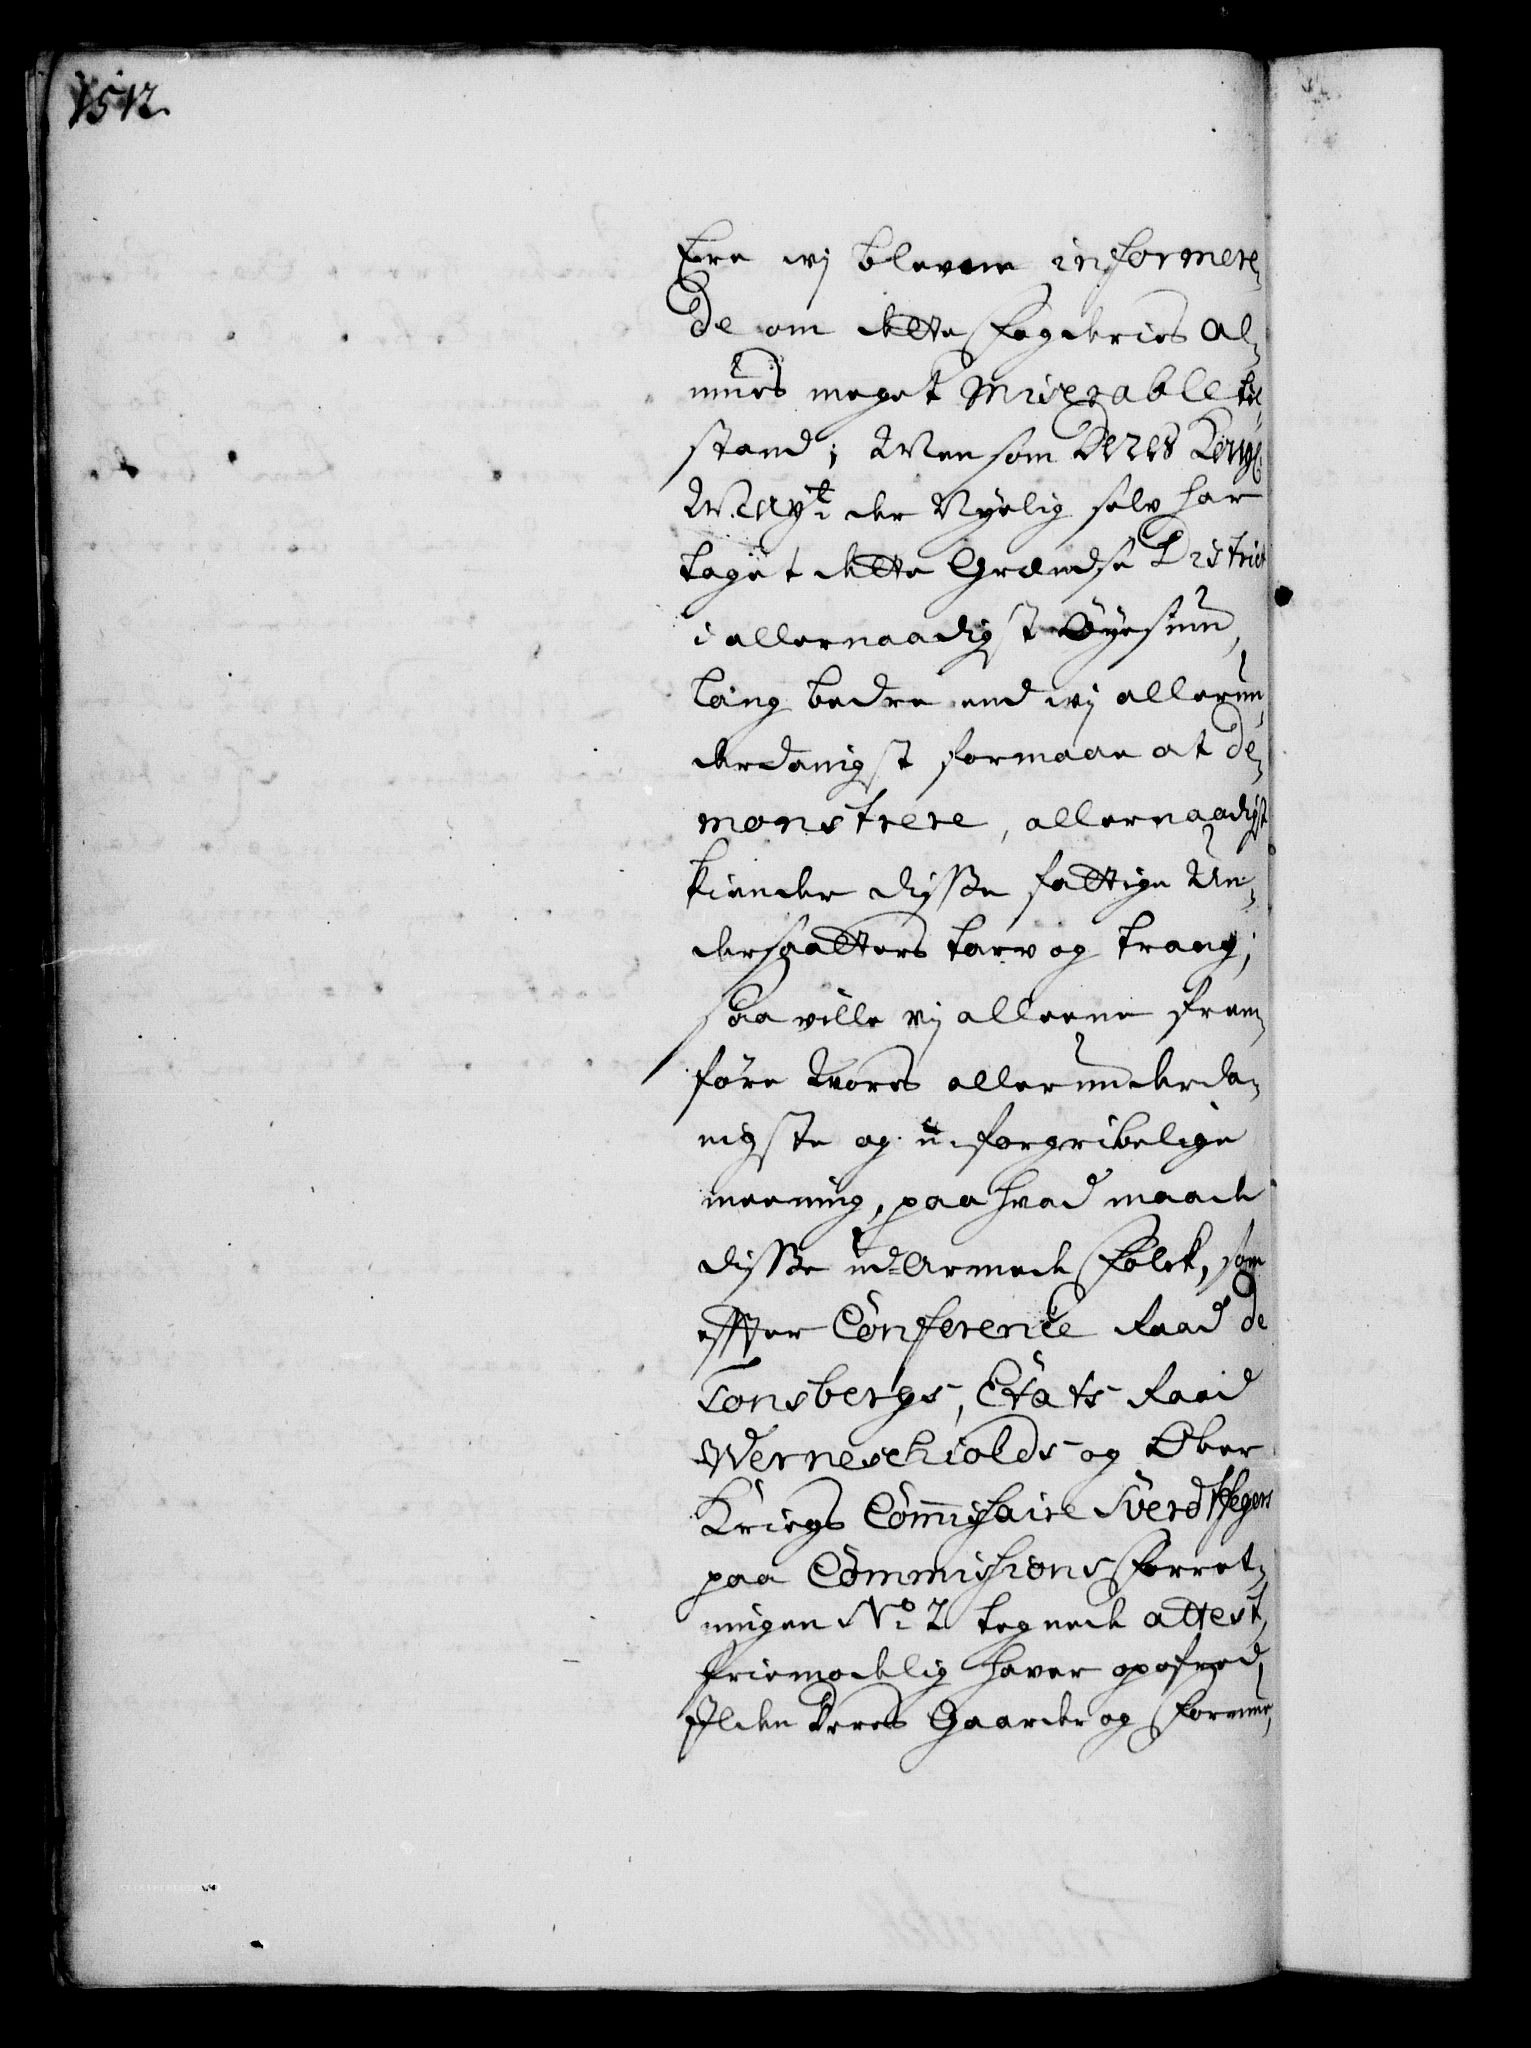 1512.
Ere wj blevene informere-
de om dette Fogderies Al-
mues meget Miserable til-
stand; Men som Deres Kongl.
May:t der Nyelig selv har
taget dette Grændse District
i allernaadigst Øyesiun,
lang bedre end wj allerun-
derdanigst formaae at de-
monstrere, allernaadigst
kiender disße fattige Un-
dersaatters tarv og trang;
Saa ville vj alleene frem-
føre Wores allerunderda-
nigste og uforgribelige
meening, paa hvad maade
disße ud-Armede Folck, som
effter Conference Raad de
Tonsbergs, Etats Raad
Werneschiolds og Ober
Kriegs Commissaire Sverdfegers
paa Commissions Forret-
ningen No 2 tegnede attest,
friemodelig haver opofred,
Ilden deres Gaarder og Formue,